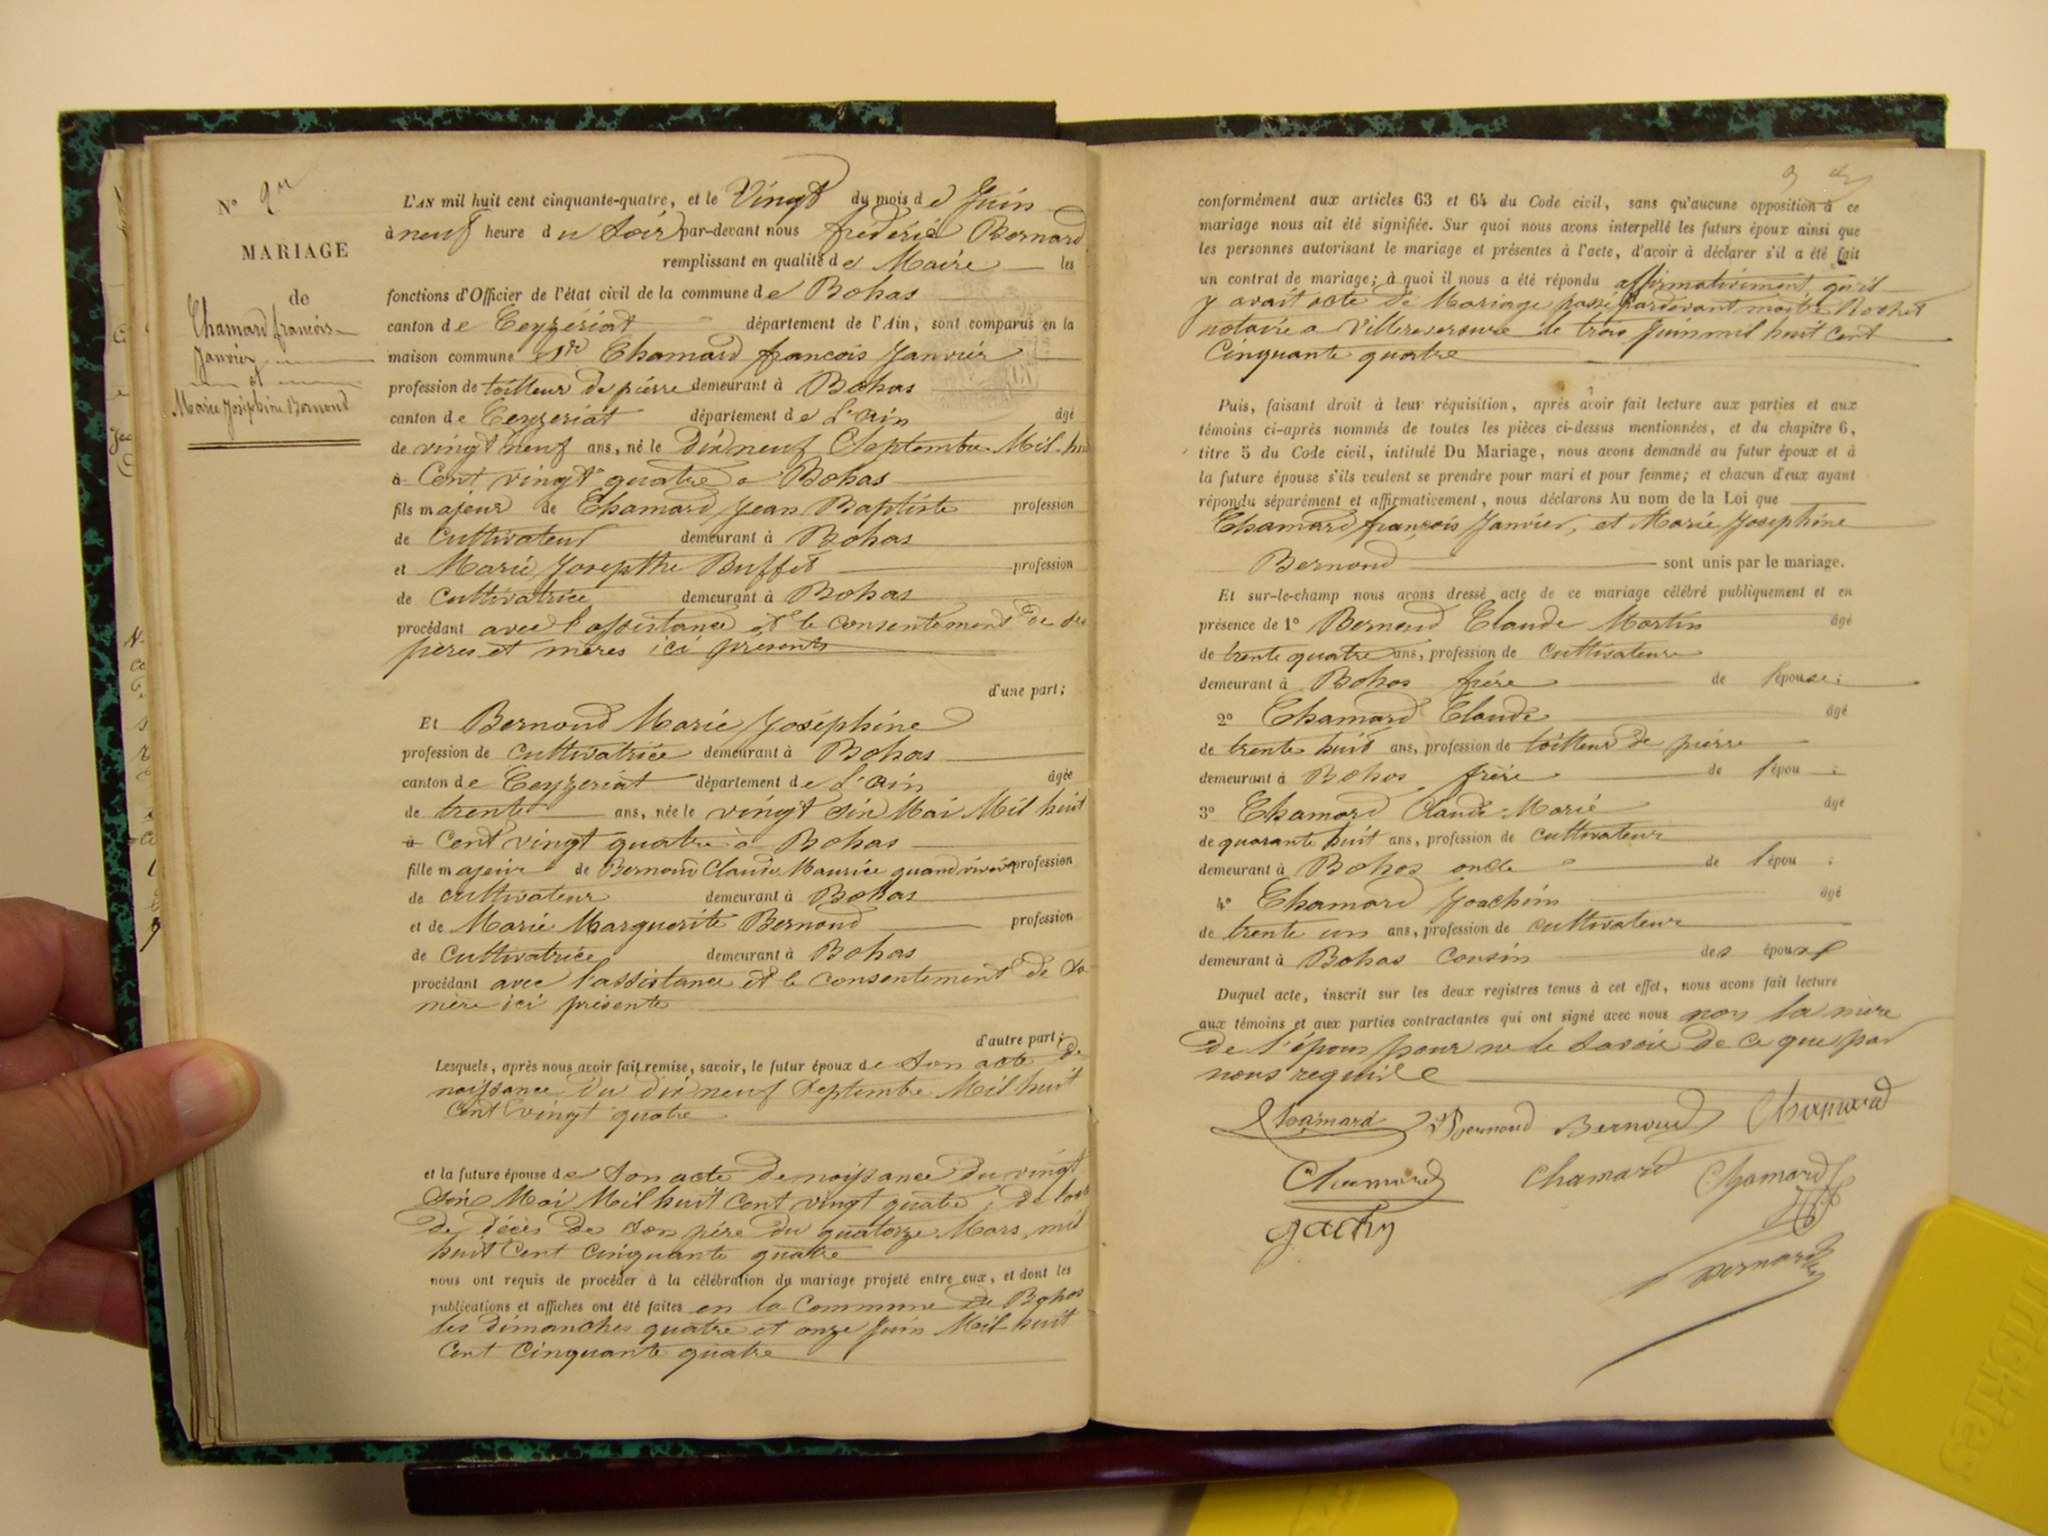 N° 9
MARIAGE
de
Chamard françois
Janvier
et
Marie Joséphine Bernoud
L'AN mil huit cent cinquante-quatre, et le Vingt du mois de Juin
à neuf heure du Soir par-devant nous frédéric Bernard
remplissant en qualité de Maire les
fonctions d'Officier de l'état civil de la commune de Bohas
canton de Ceyzériat département de l'Ain, sont comparus en la
maison commune Chamard françois Janvier
profession de tailleur de pierre demeurant à Bohas
canton de Ceyzeriat département de L'Ain âgé
de vingt neuf ans, né le Dix neuf Septembre Mil huit
à Cent vingt quatre a Bohas
fils majeur de Chamard Jean Baptiste profession
de Cultivateur demeurant à Bohas
et Marie Josepthe Buffet profession
de Cultivatrice demeurant à Bohas
procédant avec l'assistance et le consentement de ses
pères et mères ici présents
d'une part;
Et Bernoud Marie Joséphine
profession de cultivatrice demeurant à Bohas
canton de Ceyzeriat département de L'Ain âgée
de trente ans, née le vingt Six Mai Mil huit
à Cent vingt quatre à Bohas
fille majeure de Bernoud Claude Maurice quand vivait profession
de cultivateur demeurant à Bohas
et de Marie Marguerite Bernoud profession
de Cultivatrice demeurant à Bohas
procédant avec l'assistance et le consentement de Sa
mère ici présente
d'autre part;
Lesquels, après nous avoir fait remise, savoir, le futur époux de Son acte de
naissance du dix neuf Septembre Mil huit
Cent vingt quatre
et la future épouse de Son acte de naissance du vingt
Six Mai Mil huit Cent vingt quatre, De
de décès de son père du quatorze Mars mil
huit Cent Cinquante quatre
nous ont requis de procéder à la célébration du mariage projeté entre eux, et dont les
publications et affiches ont été faites en la Commune de Bohas
les dimanches quatre et onze Juin Mil huit
Cent Cinquante quatre
conformément aux articles 63 et 64 du Code civil, sans qu'aucune opposition à ce
mariage nous ait été signifiée. Sur quoi nous avons interpellé les futurs époux ainsi que
les personnes autorisant le mariage et présentes à l'acte, d'avoir à déclarer s'il a été fait
un contrat de mariage; à quoi il nous a été répondu affirmativement, qu'il
y avait acte de Mariage passé pardevant maitre Rochet
notaire a Villereversure le trois Juin mil huit cent
Cinquante quatre
Puis, faisant droit à leur réquisition, après avoir fait lecture aux parties et aux
témoins ci-après nommés de toutes les pièces ci-dessus mentionnées, et du chapitre 6,
titre 5 du Code civil, intitulé Du Mariage, nous avons demandé au futur époux et à
la future épouse s'ils veulent se prendre pour mari et pour femme; et chacun d'eux ayant
répondu séparément et affirmativement, nous déclarons Au nom de la Loi que
Chamard françois Janvier, et Marie Josephine
Bernoud sont unis par le mariage.
Et sur-le-champ nous avons dressé acte de ce mariage célébré publiquement et en
présence de 1° Bernoud Claude Martin âgé
de trente quatre ans, profession de cultivateur
demeurant à Bohas frère de l'épouse;
2° Chamard Claude âgé
de trente huit ans, profession de tailleur de pierre
demeurant à Bohas frère de l'épou ;
3° Chamard Claude Marie âgé
de quarante huit ans, profession de cultivateur
demeurant à Bohas oncle de l'épou ;
4° Chamard Joachim âgé
de trente un ans, profession de cultivateur
demeurant à Bohas Cousin des époux
Duquel acte, inscrit sur les deux registres tenus à cet effet, nous avons fait lecture
aux témoins et aux parties contractantes qui ont signé avec nous non la mère
de l'époux pour ne le savoir de ce que par
nous requise
Chamard Bernoud Bernoud Chamard
Chamard Chamard Chamard
gachy
Bernard